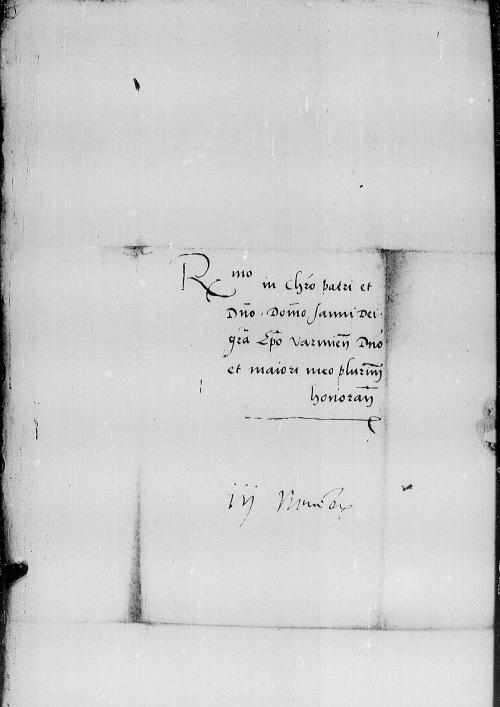 Rmo in Chro patri et
Dno. Domo Janni Dei.
gra Epo Varmien Dno
et maiori meo plurim
honoran
iij